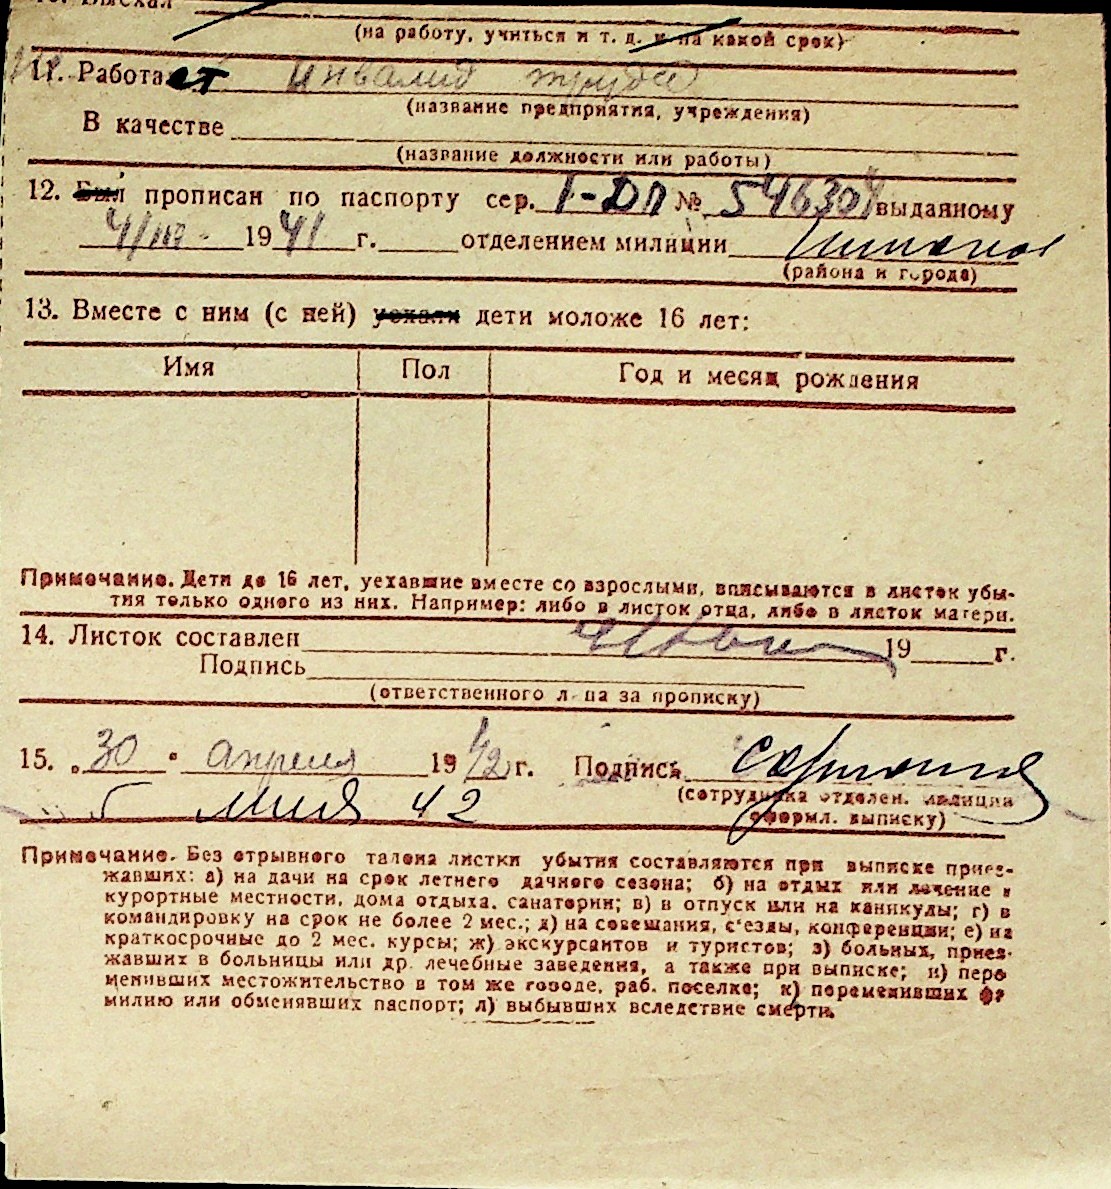 (на работу, учиться и т. д. и на какой срок)
11. Работает инвалид труда
(название предприятия, учреждения)
В качестве
(название должности или работы)
12. Был прописан по паспорту сер. I-ДП № выданному
1941 г. отделением милиции
(района и города)
13. Вместе с ним (с ней) уехали дети моложе 16 лет:
Имя Пол Год и месяц рождения
Примечание. Дети до 16 лет, уехавшие вместе со взрослыми, вписываются в листок убы-
тия только одного из них. Например: либо в листок отца, либо в листок матери.
14. Листок составлен 19 г.
Подпись
(ответственного лица за прописку)
15. „30" апреля 1942 г. Подпись
(сотрудника отделен. милиции
5 мая 42
оформл. выписку)
Примечание. Без отрывного талона листки убытия составляются при выписке приез-
жавших: а) на дачи на срок летнего дачного сезона; б) на отдых или лечение в
курортные местности, дома отдыха, санатории; в) в отпуск или на каникулы; г) в
командировку на срок не более 2 мес.; д) на совещания, с'езды, конференции; е) на
краткосрочные до 2 мес. курсы; ж) экскурсантов и туристов; з) больных, приез-
жавших в больницы или др. лечебные заведения, а также при выписке; и) пере
менивших местожительство в том же городе, раб. поселке; к) переменивших фа
милию или обменявших паспорт; л) выбывших вследствие смерти.